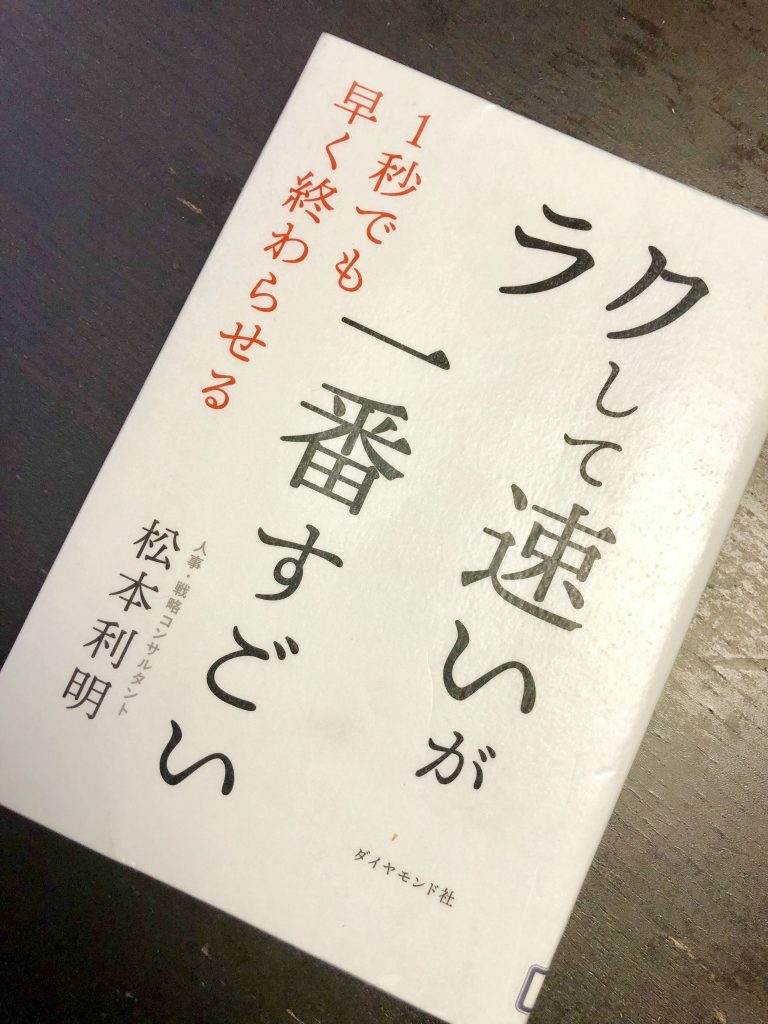 ラクして速いが
一番すごい
1秒でも
早く終わらせる
人事・戦略コンサルタント
松本利明
ダイヤモンド社